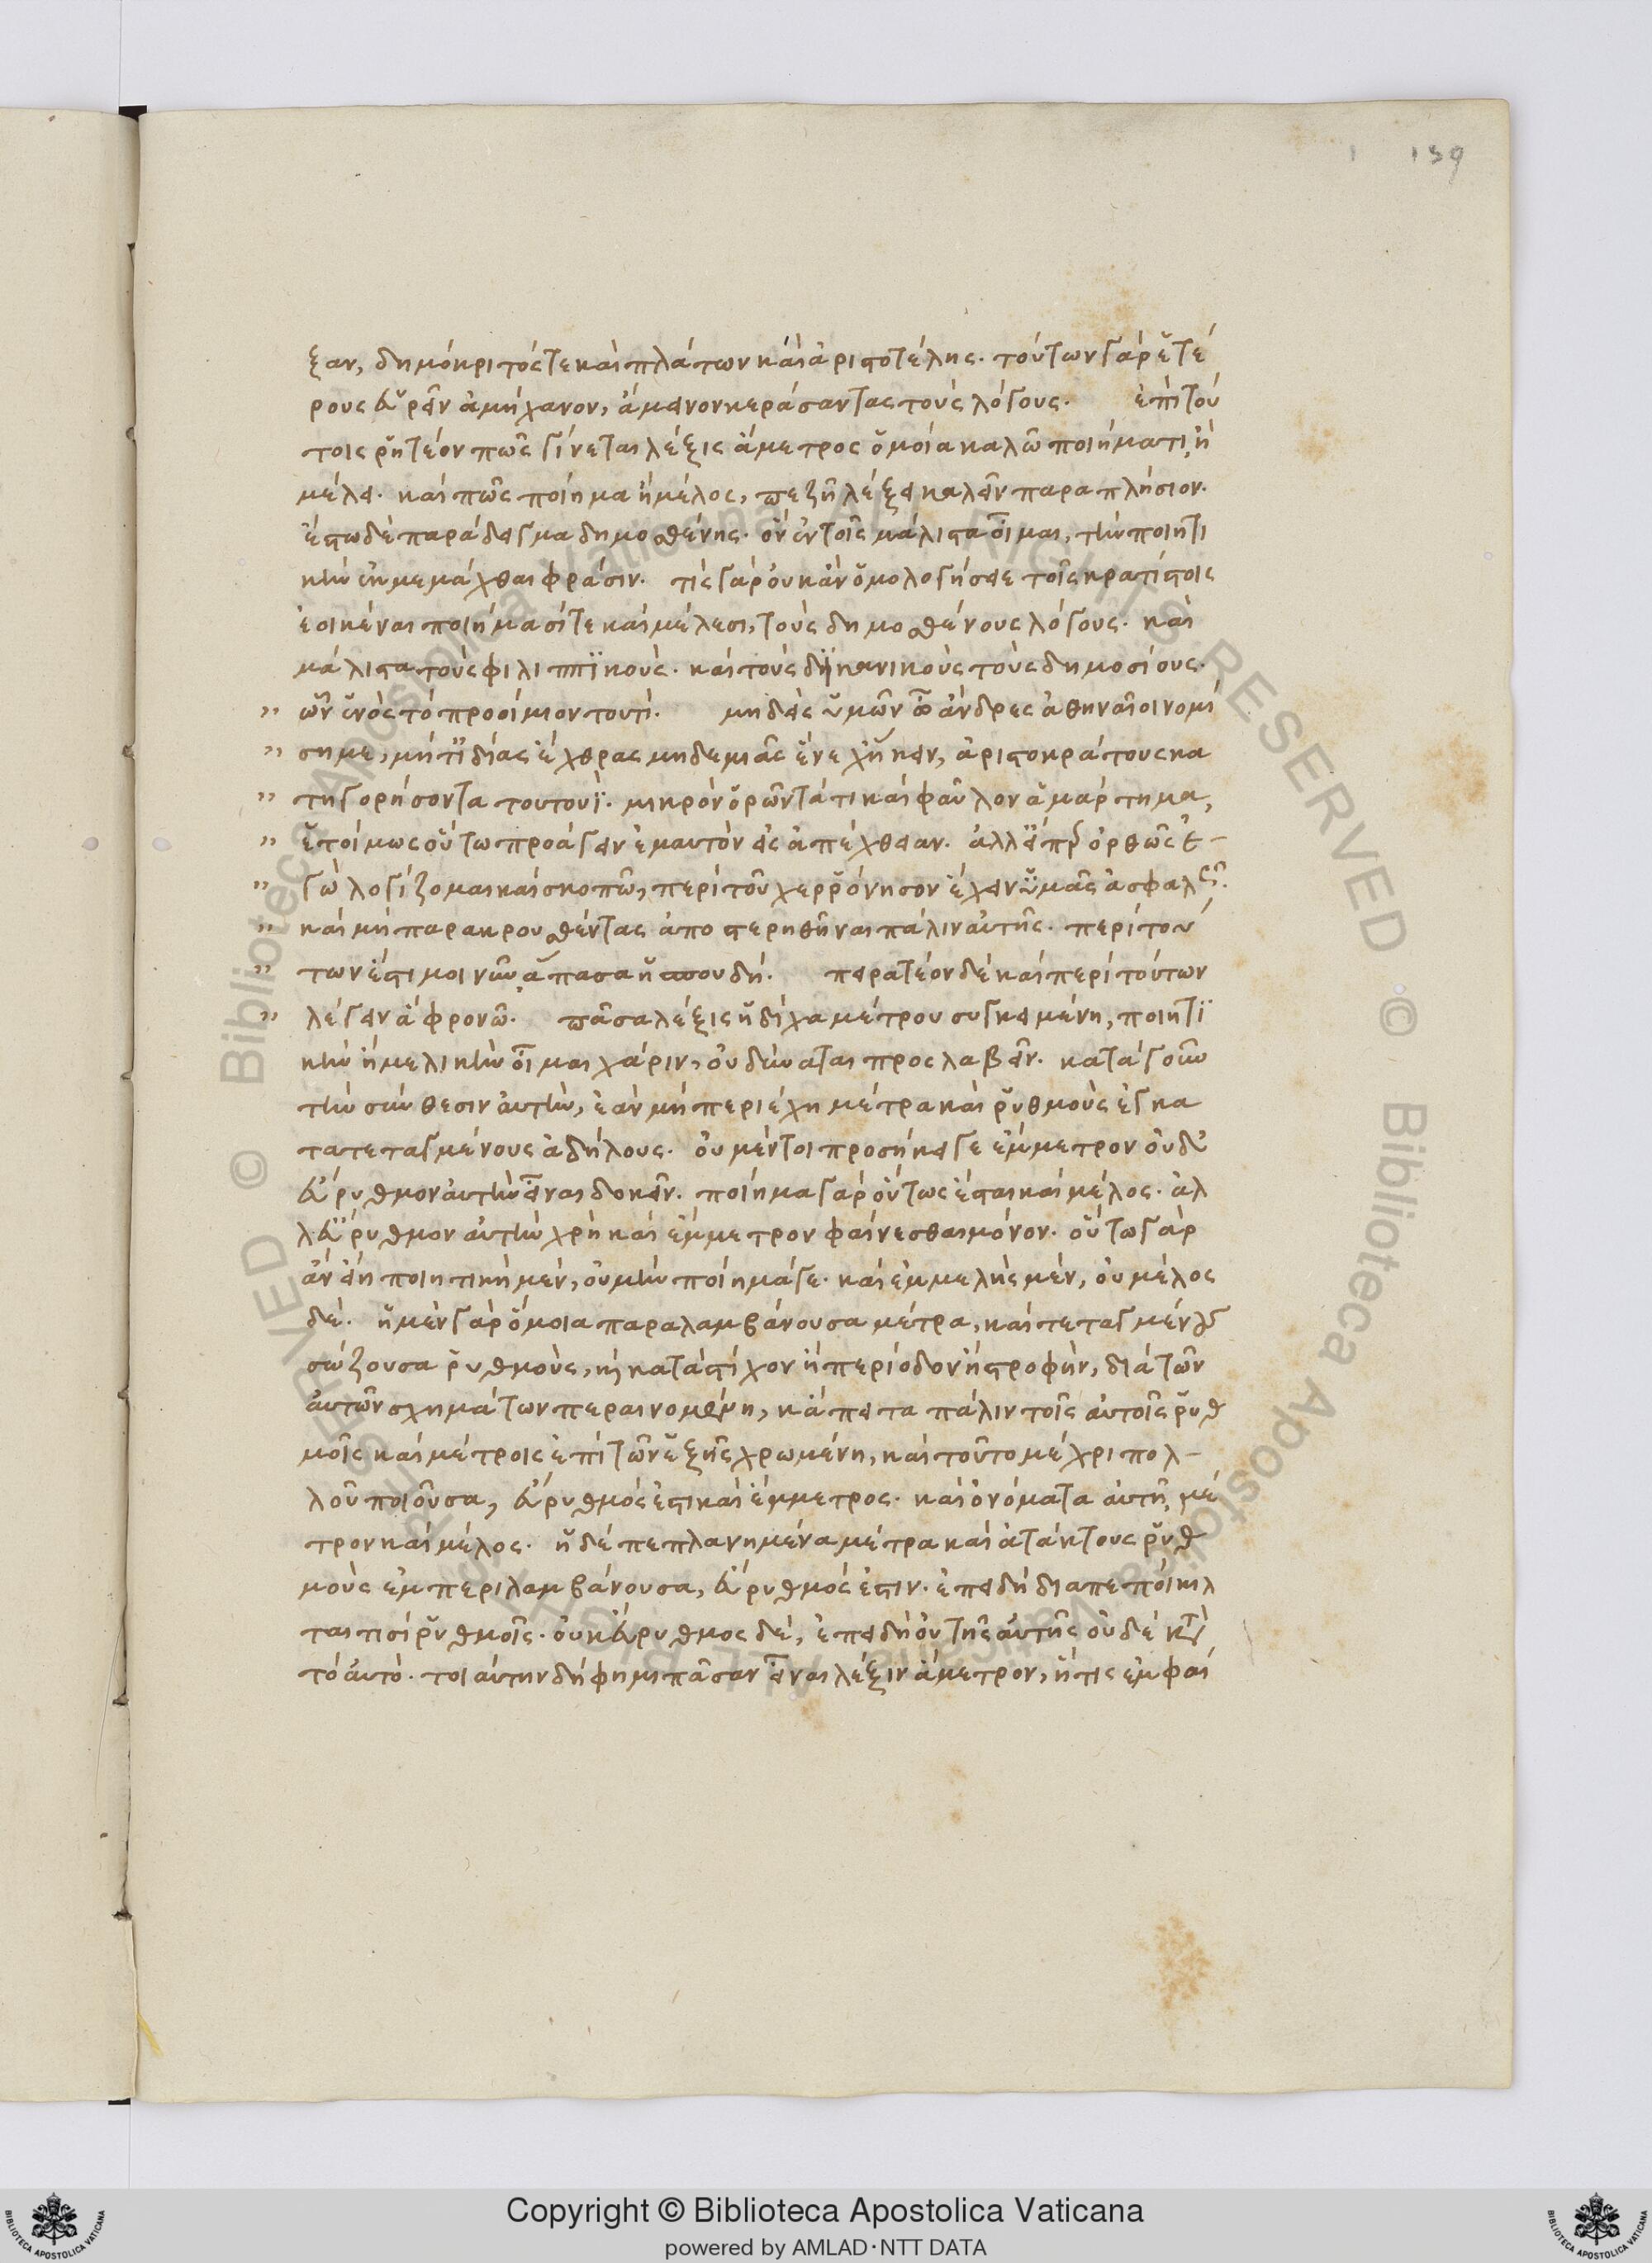 159
ξαν, δημόκριτός τε καὶ πλάτων καὶ ἀριστοτέλης. τούτων γὰρ ἑτέ
ρους εὑρεῖν ἀμήχανον, ἄμεινον κεράσαντας τοὺς λόγους. ἐπὶ τού
τοις ῥητέον πῶς γίνεται λέξις ἄμετρος ὁμοία καλῶ ποιήματι, ἢ
μέλει. καὶ πῶς ποίημα ἢ μέλος, πεζῆ λέξει καλεῖν παραπλήσιον.
ἔστω δὲ παράδειγμα δημοσθένης. ὃν ἐν τοῖς μάλιστα οἶμαι, τὴν ποιητι
κὴν ἐκμεμάχθαι φράσιν. τίς γὰρ οὐκ ἂν ὁμολογήσειε τοῖς κρατίστοις
ἐοικέναι ποιήμασί τε καὶ μέλεσι, τοὺς δημοσθένους λόγους. καὶ
μάλιστα τοὺς φιλιππϊκούς. καὶ τοὺς δικανικοὺς τοὺς δημοσίους.
" ὧν ἑνὸς τὸ προοίμιον τουτί. μηδεὶς ὑμῶν ὦ ἄνδρες ἀθηναῖοι νομί
" ση με, μήτ ἰδίας ἔχθρας μηδεμιᾶς ἕνεχ ἥκειν, ἀριστοκράτους κα
" τηγορήσοντα τουτουΐ. μικρὸν ὁρῶντά τι καὶ φαῦλον ἁμάρτημα,
" ἑτοίμως οὕτω προάγειν ἐμαυτὸν εἰς ἀπέχθειαν. ἀλλ εἴπερ ὀρθῶς ἐ-
" γὼ λογίζομαι καὶ σκοπῶ, περὶ τοῦ χερρόνησον ἔχειν ὑμᾶς ἀσφαλῶς.
" καὶ μὴ παρακρουσθέντας ἀποστερηθῆναι πάλιν αὐτῆς. περὶ τού
" των ἐστί μοι νῦν ἅπασα ἡ σπουδή. πειρατέον δὲ καὶ περὶ τούτων
" λέγειν ἃ φρονῶ. πᾶσα λέξις ἡ δίχα μέτρου συγκειμένη, ποιητϊ
κὴν ἢ μελικὴν οἶμαι χάριν, οὐ δύναται προσλαβεῖν. κατὰ γοῦν
τὴν σύνθεσιν αὐτὴν, ἐὰν μὴ περιέχη μέτρα καὶ ῥυθμοὺς ἐγκα
τατεταγμένους ἀδήλους. οὐ μέντοι προσήκει γε ἔμμετρον οὐδ
εὔρυθμον αὐτὴν εἶναι δοκεῖν. ποίημα γὰρ οὕτως ἔσται καὶ μέλος. ἀλ
λ εὔρυθμον αὐτὴν χρὴ καὶ ἔμμετρον φαίνεσθαι μόνον. οὕτω γὰρ
ἂν εἴη ποιητικὴ μέν, οὐ μὴν ποίημά γε. καὶ ἐμμελὴς μέν, οὐ μέλος
δέ. ἡ μὲν γὰρ ὅμοια παραλαμβάνουσα μέτρα, καὶ τεταγμένους
σώζουσα ῥυθμούς, ἢ κατὰ στίχον ἢ περίοδον ἢ στροφὴν, διὰ τῶν
αὐτῶν σχημάτων περαινομένη, κἄπειτα πάλιν τοῖς αὐτοῖς ῥυθ
μοῖς καὶ μέτροις ἐπὶ τῶν ἑξῆς χρωμένη, καὶ τοῦτο μέχρι πολ-
λοῦ ποιοῦσα, εὔρυθμός ἐστι καὶ ἔμμετρος. καὶ ὀνόματα αὐτῆ, μέ
τρον καὶ μέλος. ἡ δὲ πεπλανημένα μέτρα καὶ ἀτάκτους ῥυθ
μοὺς ἐμπεριλαμβάνουσα, εὔρυθμός ἐστιν. ἐπειδὴ διαπεποίκιλ
ταί τισι ῥυθμοῖς. οὐκ εὔρυθμος δέ, ἐπειδὴ οὐ τῆς αὐτῆς οὐδὲ κατὰ
τὸ αὐτό. τοιαύτην δή φημι πᾶσαν εἶναι λέξιν ἄμετρον, ἥτις ἐμφαί
Copyright © Biblioteca Apostolica Vaticana
powered by AMLAD·NTT DATA